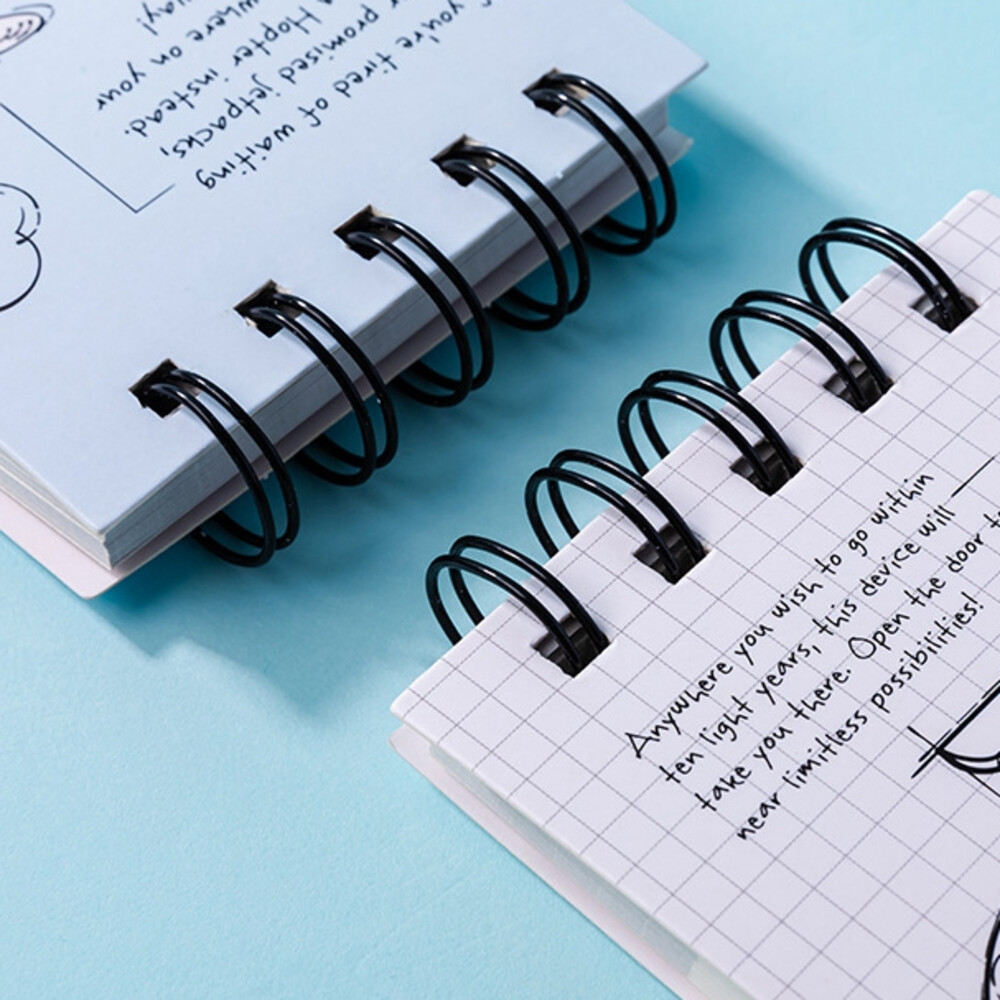 you're tired of waiting
promised jetpacks,
Hopter instead.
where on your
Anywhere you wish to go within
ten light years, this device will
take you there. Open the door to
near limitless possibilities!